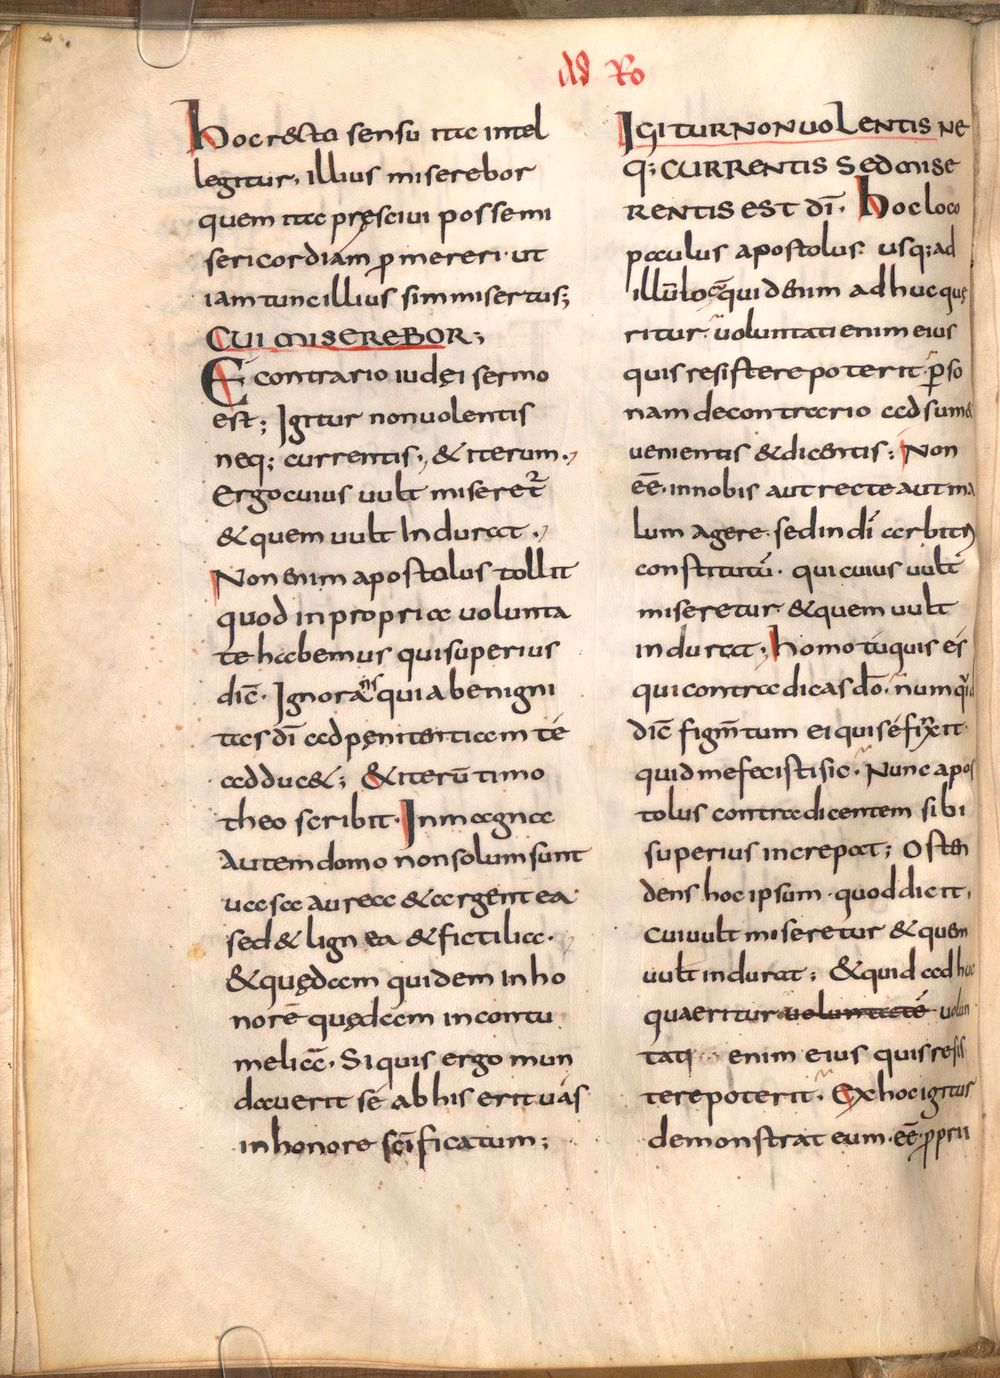 Ad Ro
hoc recto sensu ita intel
legitur, illius miserebor
quem ita pręscivi posse mi
sericordiam ꝓmereri· ut
iam tunc illius sim misertus;
CUI MISEREBOR;
E contrario iudęi sermo
est; Igitur non uolentis
neq; currentis·, & iterum·,
Ergo cuius uult miseret᷑
& quem uult Indurat·,
Non enim apostolus tollit
quod in propria uolunta
te habemus qui superius
dic̄· Ignorans quia benigni
tas dī ad pęnitentiam té
adduc&; & iterū timo
theo scribit· In magna
Autem domo non solum sunt
uasa aurea & argentea·
sed & lignea & fictilia·
& quędam quidem in ho
norē quędam in contu
meliā· Siquis ergo mun
dauerit sé ab his erit uás
in honore sc̄ificatum;
IGITUR NON UOLENTIS NE
q; CURRENTIS SED MISE
RENTIS EST DĪ· hoc loco
paulus apostolus· usq; ad
illū locū quid enim adhuc quę
ritur· uoluntati enim eius
quis resistere poterit· ꝑso
nam de contrario adsum&
uenientis & dicentis; Non
eē· in nobis aut recte aut ma
lum agere· sed in dī arbitrio
constitutū· qui cuius uult
miseretur & quem uult
indurat·, homo tú quis és
qui contradicas dō· numquid
dic̄ figm̄tum ei qui sé finxit·
quid me fecisti sic· Nunc apos
tolus contradicentem sibi
superius increpat; Osten
dens hoc ipsum· quod dicit,
cui uult miseretur & quem
uult indurat; & quid adhuc
quaeritur uoluntate uolun
tati enim eius quis resis
tere poterit· Ex hoc igitur
demonstrat eum· eē· ꝓprii